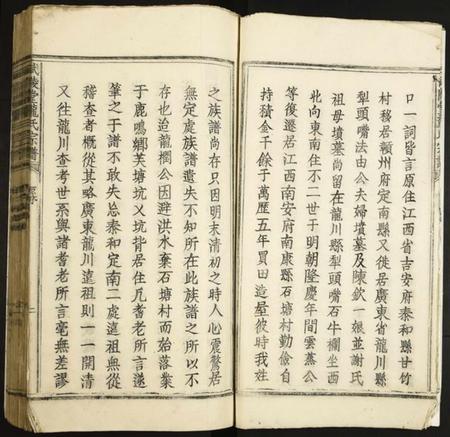 口一詞皆言原住江西省吉安府泰和縣甘竹
村移居贛州府定南縣又徙居廣東省龍川縣
犁頭嘴法由公夫婦墳墓及陳欽一娘並謝氏
祖母墳墓尚留在龍川縣犁頭嘴石牛欄坐西
北向東南住不二世于明朝隆慶年間雲蒸公
等復遷居江西南安府南康縣石塘村勤儉自
持積金千餘于萬歷五年買田造屋彼時我姓
之族譜尚存只因明末清初之時人心震驚居
無定處族譜遺失不知所在此族譜之所以不
存也迨龍欄公因避洪水棄石塘村而始落業
于鹿鳴鄉芙塘坑乂坑背居住凡耆老所言遂
筆之于譜不敢失忘泰和定南二處遠祖無從
稽查者概從其略廣東龍川遠祖則一一開清
又往龍川查考世系與諸耆老所言毫無差謬
武陵堂龍氏宗譜